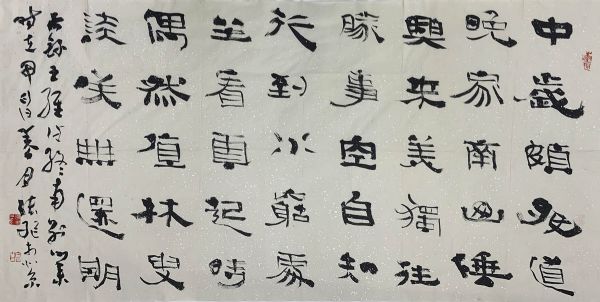 中歲頗好道
晚家南山陲
興來美獨往
勝事空自知
行到水窮處
坐看雲起時
偶然值林叟
談咲無還期
右錄王維詩終南別業
時在甲辰春月